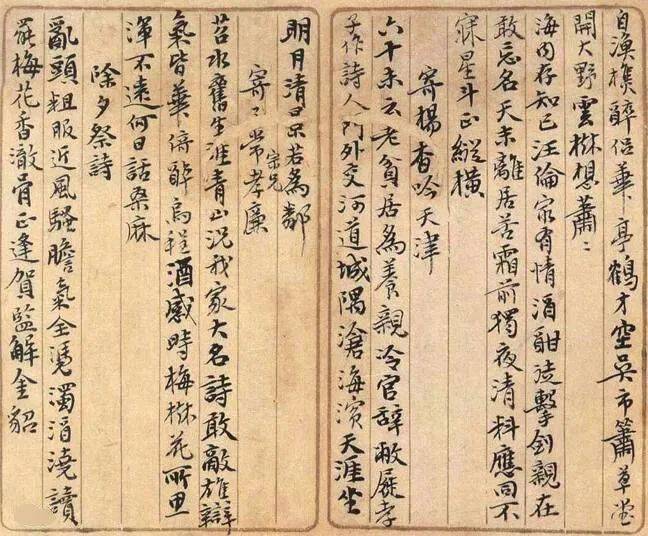 自漁樵醉倍華亭鶴才空吳市簫草堂
開大野雲樹想蕭〻
海內存知己汪倫家有情酒酣莫擊劍親在
敢忘名天末離居苦霜前獨夜清料應同不
寐星斗正縱橫
寄楊香吟天津
六十未云老貧居為養親冷官辭敝屣孝
子作詩人門外交河道城隅滄海濱天涯坐
明月清景若為鄰
寄〻常宗兄孝廉
苕水舊生涯青山況我家大名詩敢敵雄辯
氣皆華倚醉烏程酒感時梅樹花所思
渾不遠何日話桑麻
除夕祭詩
亂頭粗服近風騷膽氣全憑濁酒澆讀
罷梅花香澈骨正逢賀監解金貂